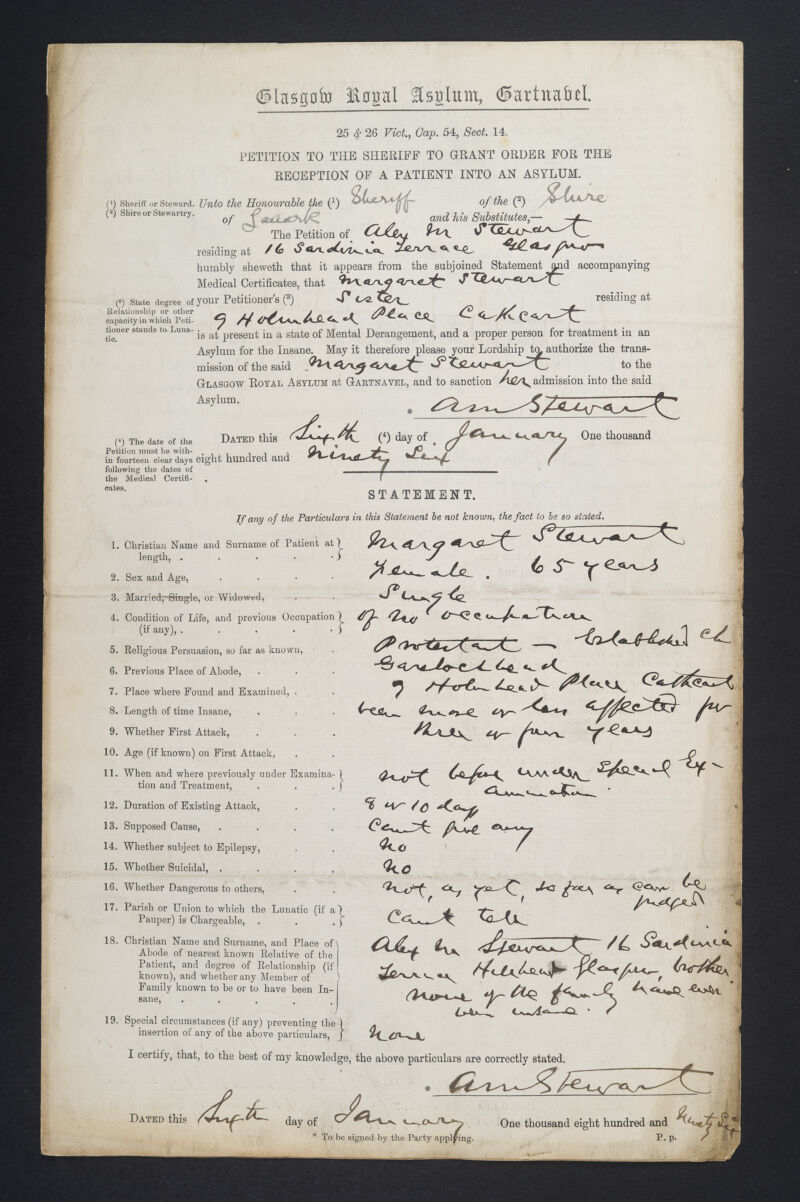 Glasgow Royal Asylum, Gartnabel.
25 & 26 Vict., Cap. 54, Sect. 14.
PETITION TO THE SHERIFF TO GRANT ORDER FOR THE
RECEPTION OF A PATIENT INTO AN ASYLUM.
(1) Sheriff or Steward.
(2) Shire or Stewartry.
Unto the Honourable the (1) Sheriff of the (2) Shire
of Lanark and his Substitutes,—
The Petition of Alex M Stewart
residing at 16 Sardinia Terrace Glasgow
humbly sheweth that it appears from the subjoined Statement and accompanying
Medical Certificates, that Margaret Stewart
(3) State degree of
Relationship or other
capacity in which Peti-
tioner stands to Luna-
tic.
your Petitioner's (3) Sister residing at
9 Holmhead Place Cathcart
is at present in a state of Mental Derangement, and a proper person for treatment in an
Asylum for the Insane. May it therefore please your Lordship to authorize the trans-
mission of the said Margaret Stewart to the
GLASGOW ROYAL ASYLUM AT GARTNAVEL, and to sanction her admission into the said
Asylum.
* AM Stewart
(4) The date of the
Petition must be with-
in fourteen clear days
following the dates of
the Medical Certifi-
cates.
DATED this Sixth (4) day of January One thousand
eight hundred and Ninety Six
STATEMENT.
If any of the Particulars in this Statement be not known, the fact to be so stated.
1. Christian Name and Surname of Patient at
length, . Margaret Stewart
2. Sex and Age, Female. 65 years
3. Married, Single, or Widowed, Single
4. Condition of Life, and previous Occupation
(if any), . of no occupation
5. Religious Persuasion, so far as known, Protestant – Established Ch
6. Previous Place of Abode, Garelochhead
7. Place where Found and Examined, 9 Holmhead Place Cathcart
8. Length of time Insane, been more or less affected for
9. Whether First Attack, three or four years
10. Age (if known) on First Attack,
11. When and where previously under Examina-
tion and Treatment, not before under Special Ex-
amination
12. Duration of Existing Attack, 8 or 10 days
13. Supposed Cause, Can't give any
14. Whether subject to Epilepsy, No
15. Whether Suicidal, No
16. Whether Dangerous to others, not, as yet, so far as can be
judged
17. Parish or Union to which the Lunatic (if a
Pauper) is Chargeable, Can't tell
18. Christian Name and Surname, and Place of
Abode of nearest known Relative of the
Patient, and degree of Relationship (if
known), and whether any Member of
Family known to be or to have been In-
sane,
Alex M Stewart 16 Sardinia
Terrace Hillhead Glasgow, brother
none of the family have ever
been insane.
19. Special circumstances (if any) preventing the
insertion of any of the above particulars, None
I certify, that, to the best of my knowledge, the above particulars are correctly stated.
* AM Stewart
DATED this Sixth day of January One thousand eight hundred and Ninety Six
* To be signed by the Party applying.
P. p.